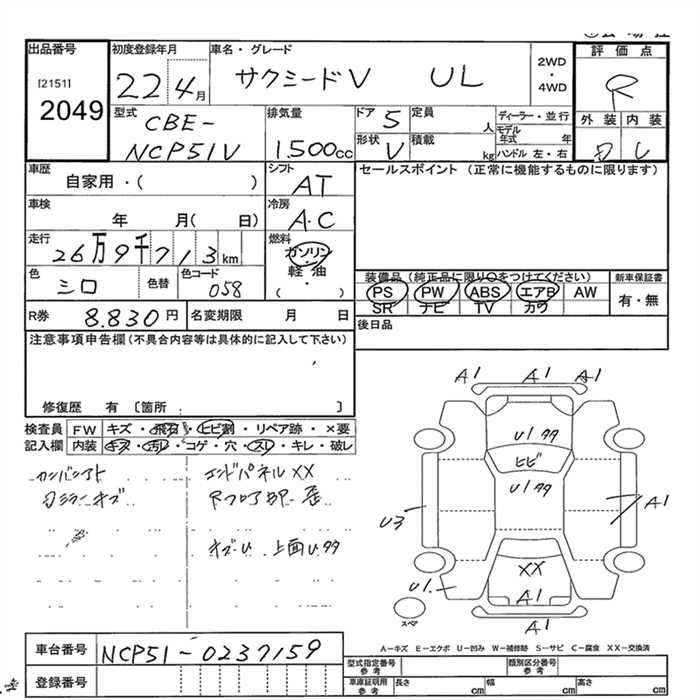 出品番号
[2151]
2049
初度登録年月
22 4月
車名・グレード
サクシードV UL
2WD
・
4WD
評価点
R
外装 内装
型式
CBE-
NCP51V
排気量
1.500cc
ドア 5
定員
人
形状 V
積載
kg
ディーラー・並行
モデル
年式 年
ハンドル 左・右
車歴
自家用・( )
シフト
AT
セールスポイント (正常に機能するものに限ります)
車検
年 月( 日)
冷房
A.C
走行
26万9千713km
燃料
ガソリン
軽・油
( )
色
シロ
色替
色コード
058
装備品(純正品に限り○をつけてください)
PS PW ABS エアB AW
SR ナビ TV カワ
新車保証書
有・無
R券 8.830円
名変期限 月 日
後日品
注意事項申告欄(不具合内容等は具体的に記入して下さい)
修復歴 有 〔箇所 〕
検査員
記入欄
FW キズ・飛石・ヒビ割・リペア跡・×要
内装 キズ・汚レ・コゲ・穴・スレ・キレ・破レ
エンドパネルXX
上面U、タタ
A1 A1 A1
U1 タタ
ヒビ
U1タタ
A1
U3
XX
U1.
A1
スペマ
A1
A-キズ E-エクボ U-凹み W-補修跡 S-サビ C-腐食 XX-交換済
車台番号 NCP51-0237159
登録番号
型式指定番号
参考
類別区分番号
参考
車庫証明用
参考
長さ cm
幅 cm
高さ cm